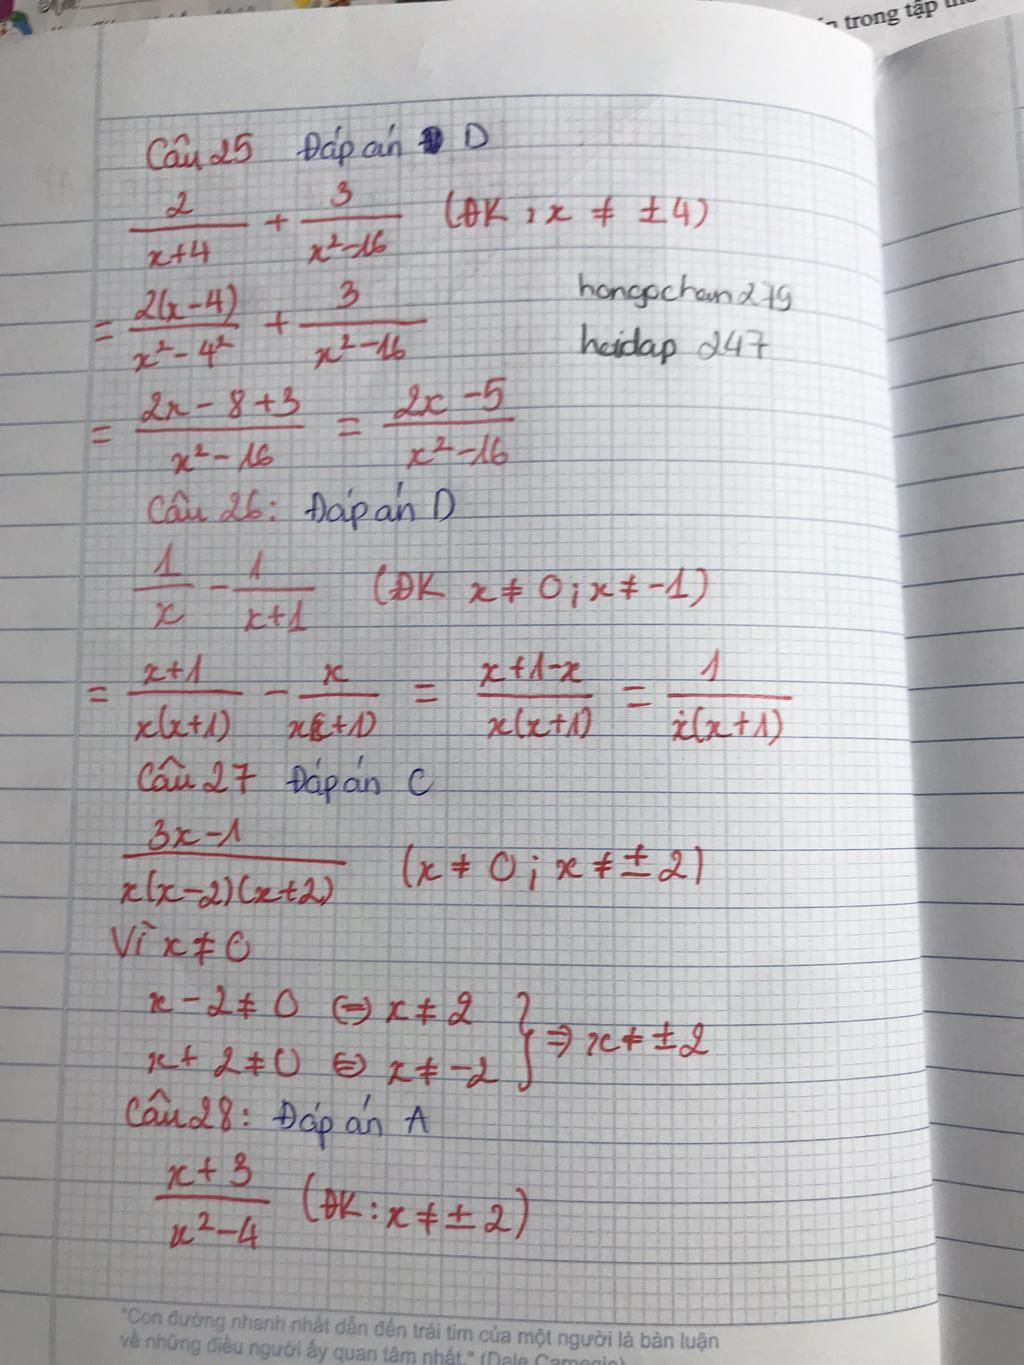 n trong tập
Câu 25 Đáp án D
2/(x+4) + 3/(x²-16) (ĐK: x ≠ ±4)
= 2(x-4)/(x²-4²) + 3/(x²-16)
hongochan279
hoidap 247
= (2x-8+3)/(x²-16) = (2x-5)/(x²-16)
Câu 26: Đáp án D
1/x - 1/(x+1) (ĐK x ≠ 0; x ≠ -1)
= (x+1)/(x(x+1)) - x/(x(x+1)) = (x+1-x)/(x(x+1)) = 1/(x(x+1))
Câu 27 Đáp án C
(3x-1)/(x(x-2)(x+2)) (x ≠ 0; x ≠ ±2)
Vì x ≠ 0
x-2 ≠ 0 ⇔ x ≠ 2
x+2 ≠ 0 ⇔ x ≠ -2 } ⇒ x ≠ ±2
Câu 28: Đáp án A
(x+3)/(x²-4) (ĐK: x ≠ ±2)
"Con đường nhanh nhất dẫn đến trái tim của một người là bàn luận
về những điều người ấy quan tâm nhất." (Dale Carnegie)